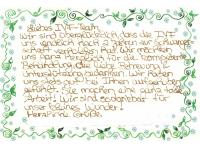 Liebes IVF-Team,
wir sind überglücklich, dass die IVF
uns endlich nach 2 Jahren zur Schwanger-
schaft verholfen hat. Wir möchten
uns ganz herzlich für die kompetente
Behandlung, die liebe Betreuung &
Unterstützung bedanken. Wir haben
uns stets bei Ihnen gut
gefühlt. Sie machen eine ganz tolle
Arbeit! Wir sind so dankbar für
unser kleines Wunder!
Herzliche Grüße